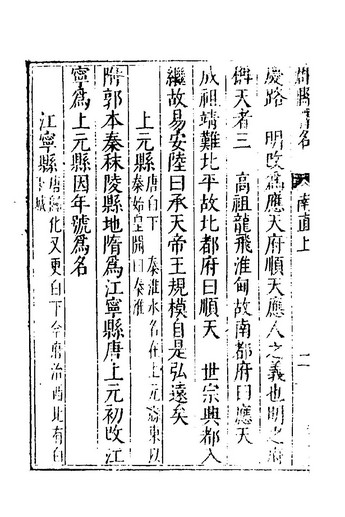 郡縣釋名 南直上 二
慶路 明改為應天府順天應人之義也明之府
稱天者三 高祖龍飛淮甸故南都府曰應天
成祖靖難北平故北都府曰順天 世宗興都入
繼故易安陸曰承天帝王規模自是弘遠矣
上元縣 唐白下 秦淮水名在上元治東以
秦始皇開曰秦淮
附郭本秦秣陵縣地隋為江寧縣唐上元初改江
寧為上元縣因年號為名
江寧縣 唐歸化又更白下今縣治西北有白
下城